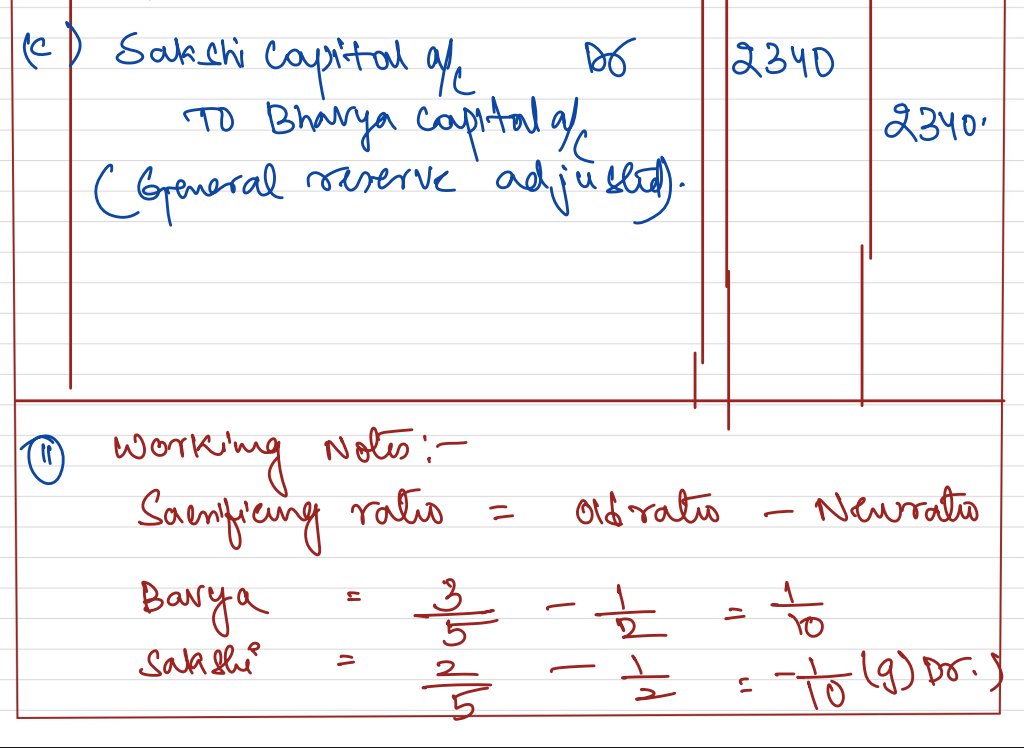 (c) Sakshi Capital a/c Dr 2340
TO Bhavya Capital a/c 2340
(General reserve adjusted).
(ii) Working Notes:-
Sacrificing ratio = Old ratio - New ratio
Bavya = 3/5 - 1/2 = 1/10
Sakshi = 2/5 - 1/2 = -1/10 (g) Dr.)